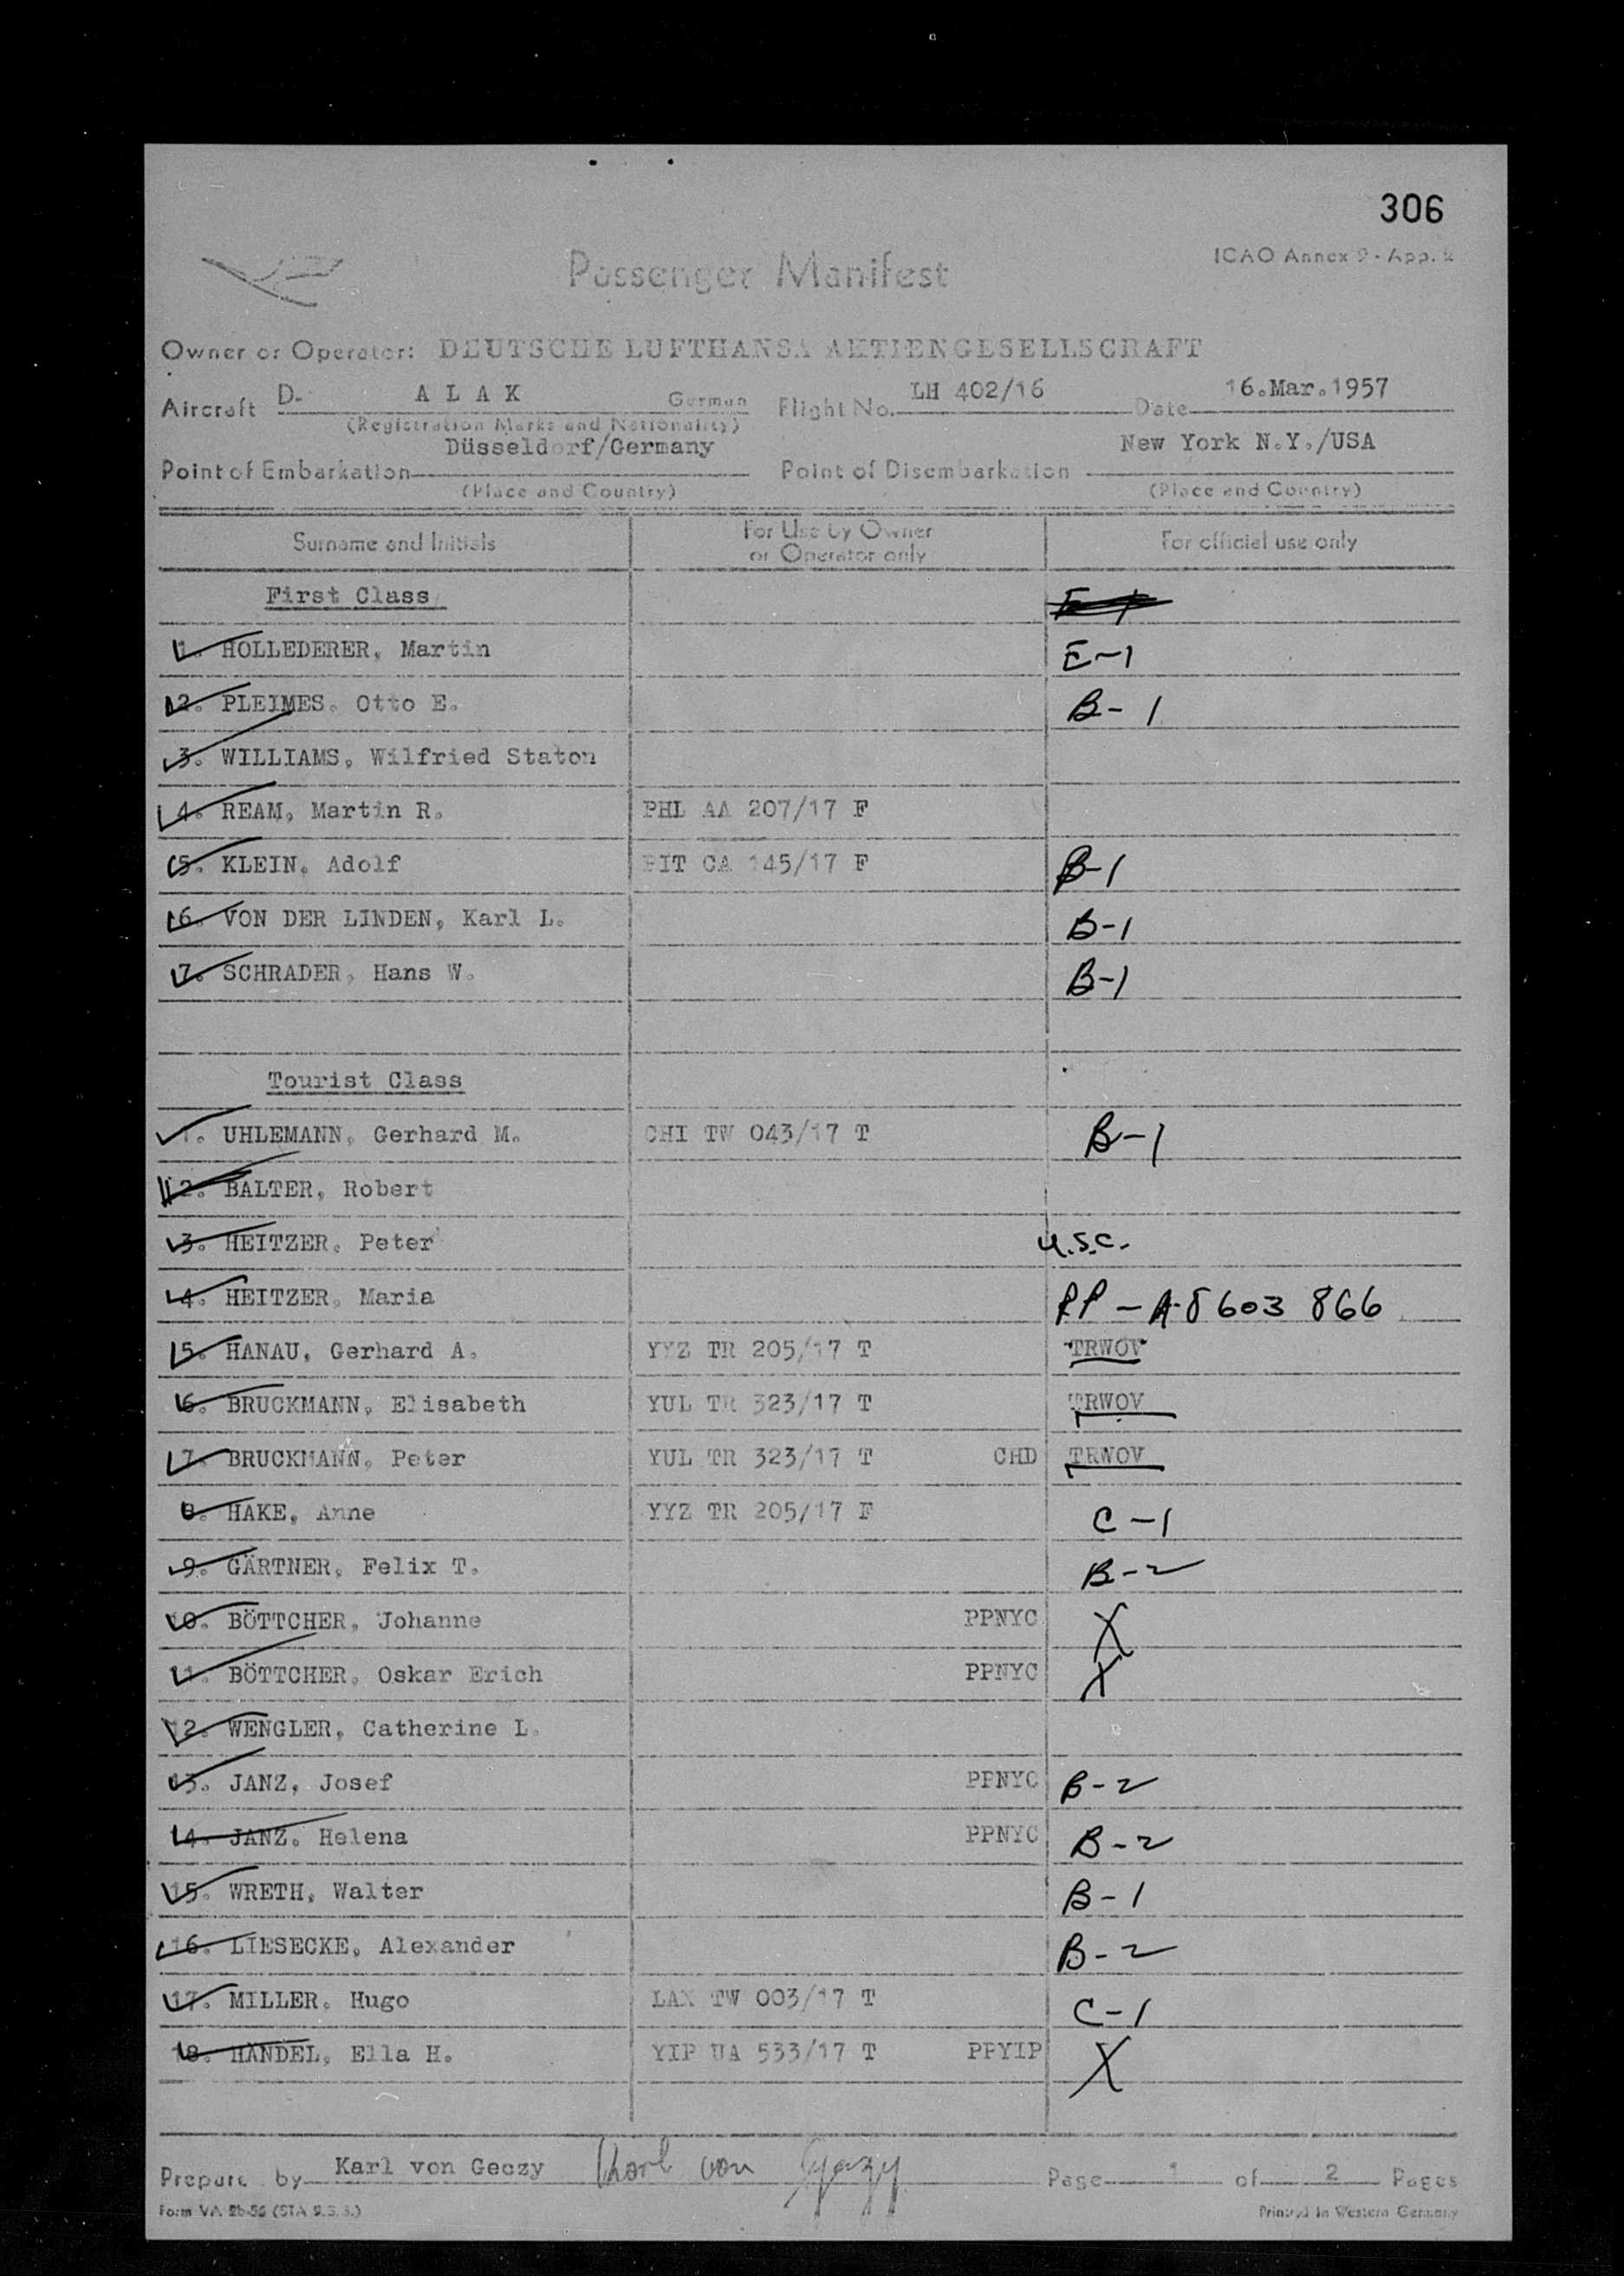 306
Passenger Manifest
ICAO Annex 9 - App. 2
Owner or Operator: DEUTSCHE LUFTHANSA AKTIENGESELLSCHAFT
Aircraft D- A L A K German Flight No. LH 402/16 Date 16.Mar.1957
(Registration Marks and Nationality)
Point of Embarkation Düsseldorf/Germany Point of Disembarkation New York N.Y./USA
(Place and Country) (Place and Country)
Surname and Initials For Use by Owner or Operator only For official use only
First Class
1. HOLLEDERER, Martin E-1
2. PLEIMES, Otto E. B-1
3. WILLIAMS, Wilfried Staton
4. REAM, Martin R. PHL AA 207/17 F
5. KLEIN, Adolf PIT CA 145/17 F B-1
6. VON DER LINDEN, Karl L. B-1
7. SCHRADER, Hans W. B-1
Tourist Class
1. UHLEMANN, Gerhard M. CHI TW 043/17 T B-1
2. BALTER, Robert
3. HEITZER, Peter U.S.C.
4. HEITZER, Maria RP - A-8603 866
5. HANAU, Gerhard A. YYZ TR 205/17 T TRWOV
6. BRUCKMANN, Elisabeth YUL TR 323/17 T TRWOV
7. BRUCKMANN, Peter YUL TR 323/17 T CHD TRWOV
8. HAKE, Anne YYZ TR 205/17 F C-1
9. GÄRTNER, Felix T. B-2
10. BÖTTCHER, Johanne PPNYC X
11. BÖTTCHER, Oskar Erich PPNYC X
12. WENGLER, Catherine L.
13. JANZ, Josef PPNYC B-2
14. JANZ, Helena PPNYC B-2
15. WRETH, Walter B-1
16. LIESECKE, Alexander B-2
17. MILLER, Hugo LAX TW 003/17 T C-1
18. HÄNDEL, Ella H. YIP UA 533/17 T PPYIP X
Prepare by Karl von Geczy Karl von Geczy Page 1 of 2 Pages
Form VA 2b-56 (STA 9.3.3.) Printed in Western Germany